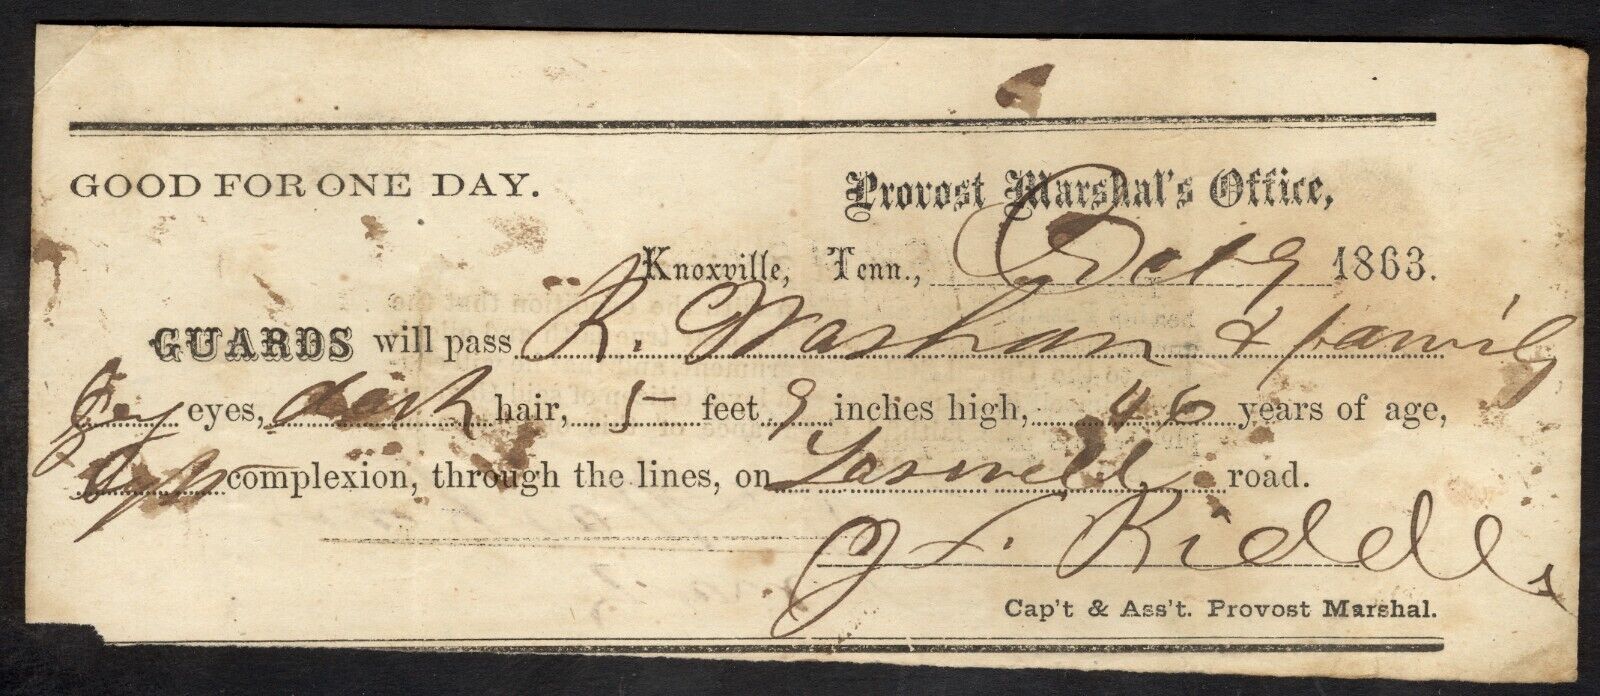 GOOD FOR ONE DAY.
Provost Marshal's Office,
Knoxville, Tenn., Oct 9 1863.
GUARDS will pass R. & family
Grey eyes, dark hair, 5 feet 9 inches high, 46 years of age,
complexion, through the lines, on Taswell road.
J. L. Riddle
Cap't & Ass't. Provost Marshal.